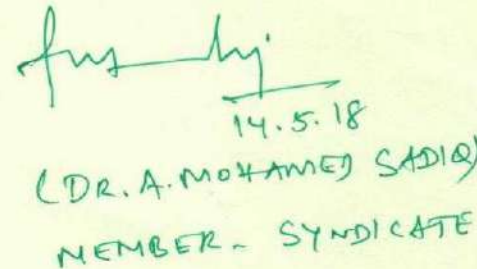 14.5.18
(DR. A. MOHAMED SADIQ)
MEMBER - SYNDICATE